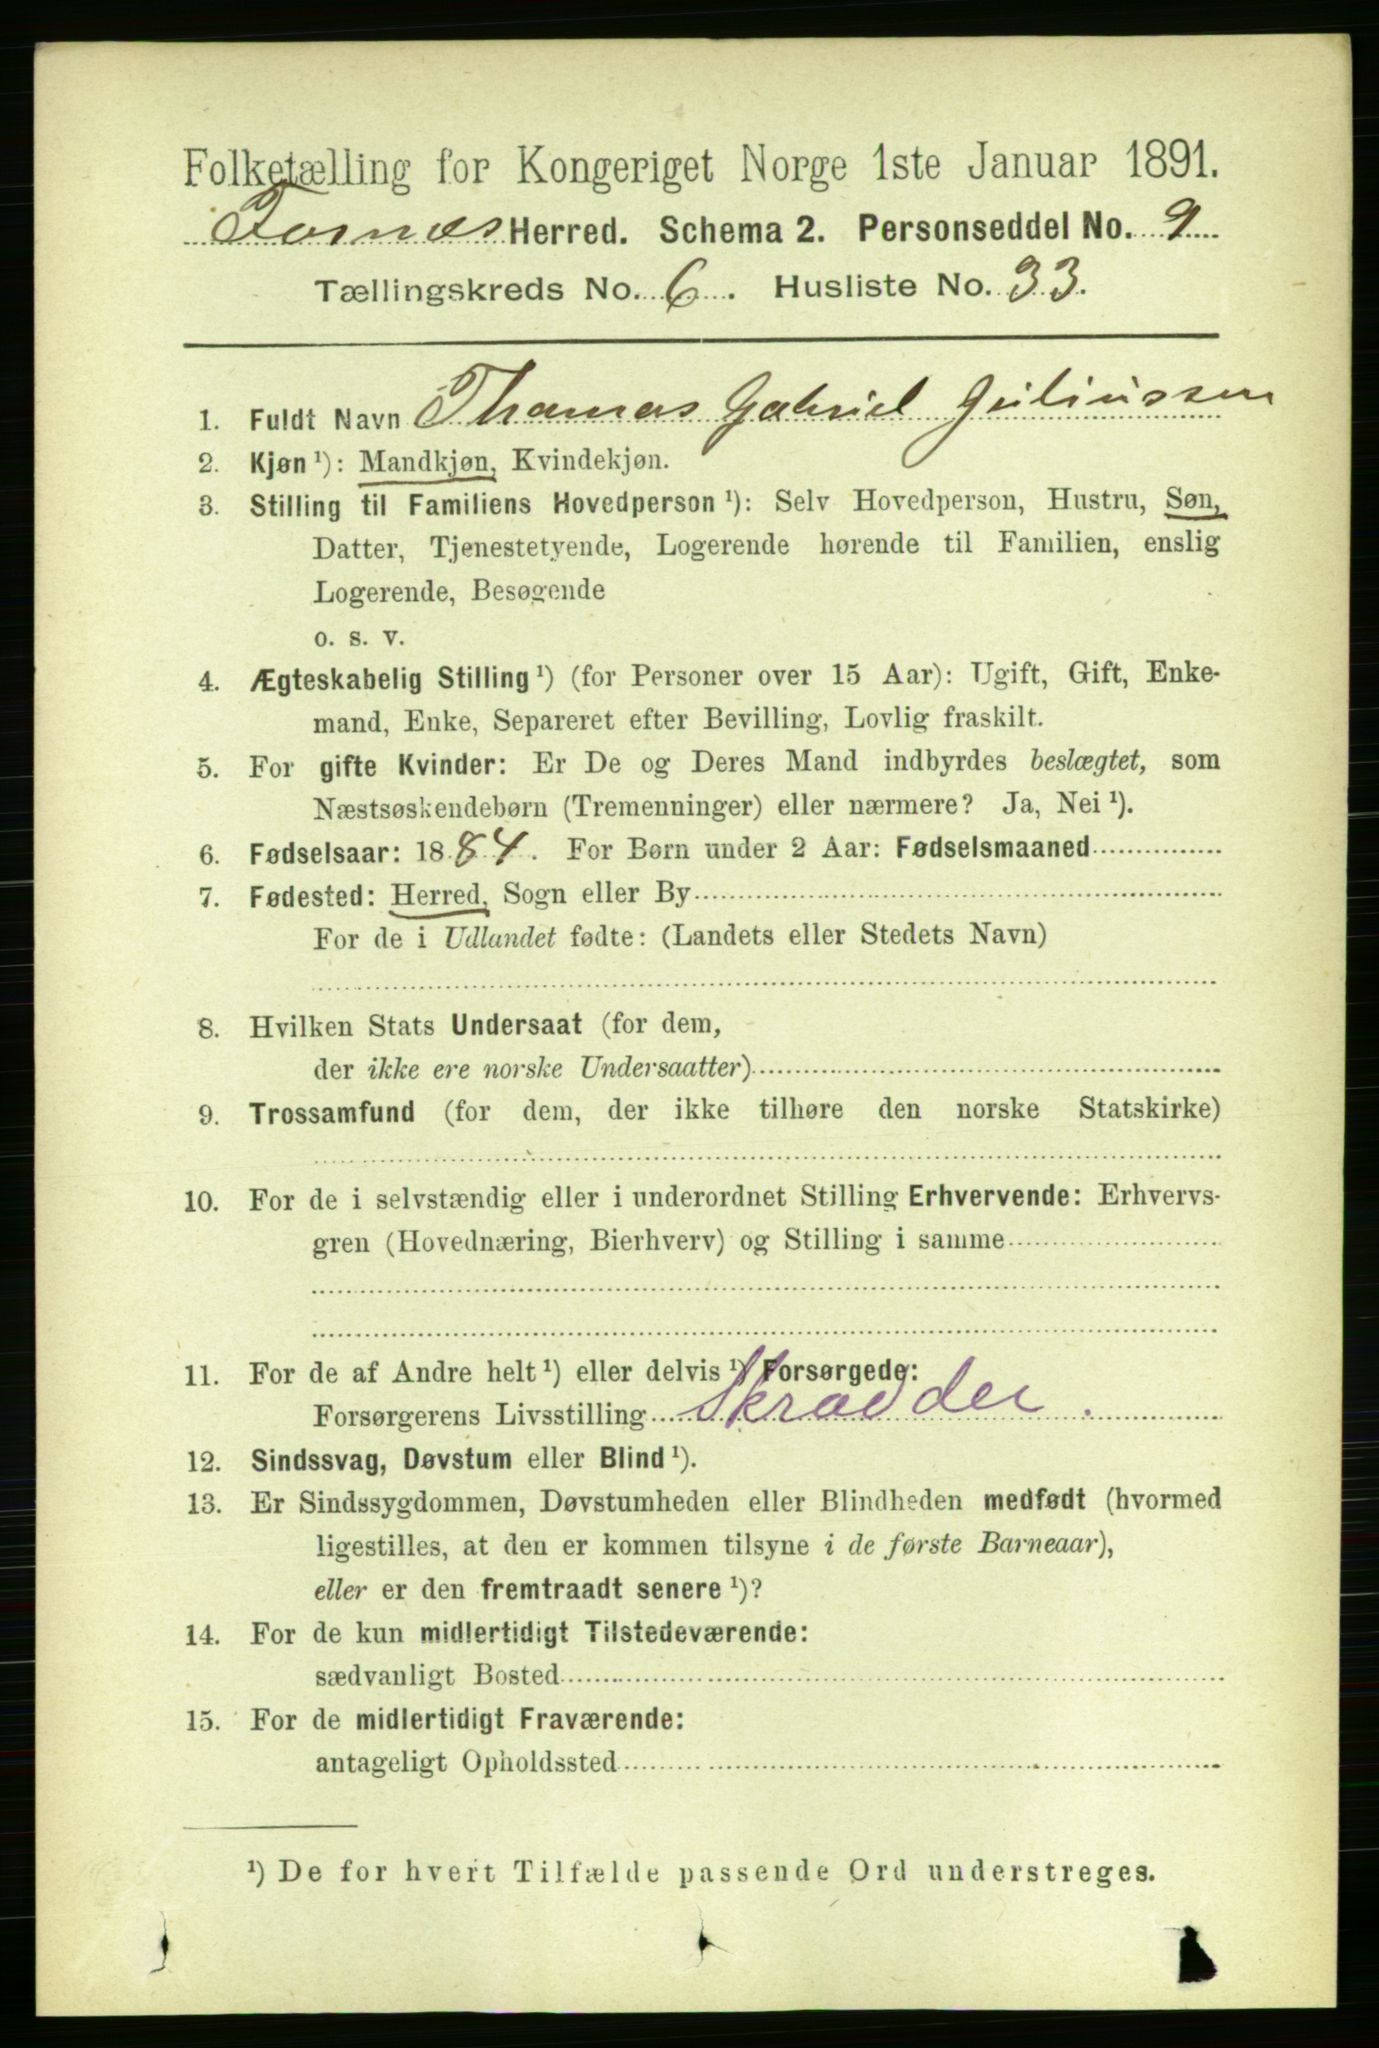 Folketælling for Kongeriget Norge 1ste Januar 1891.
Fosnæs Herred. Schema 2. Personseddel No. 9
Tællingskreds No. 6. Husliste No. 33.
1. Fuldt Navn Thomas Gabriel Juliussen
2. Kjøn ¹): Mandkjøn, Kvindekjøn.
3. Stilling til Familiens Hovedperson ¹): Selv Hovedperson, Hustru, Søn,
Datter, Tjenestetyende, Logerende hørende til Familien, enslig
Logerende, Besøgende
o. s. v.
4. Ægteskabelig Stilling ¹) (for Personer over 15 Aar): Ugift, Gift, Enke-
mand, Enke, Separeret efter Bevilling, Lovlig fraskilt.
5. For gifte Kvinder: Er De og Deres Mand indbyrdes beslægtet, som
Næstsøskendebørn (Tremenninger) eller nærmere? Ja, Nei ¹).
6. Fødselsaar: 1884. For Børn under 2 Aar: Fødselsmaaned
7. Fødested: Herred, Sogn eller By
For de i Udlandet fødte: (Landets eller Stedets Navn)
8. Hvilken Stats Undersaat (for dem,
der ikke ere norske Undersaatter)
9. Trossamfund (for dem, der ikke tilhøre den norske Statskirke)
10. For de i selvstændig eller i underordnet Stilling Erhvervende: Erhvervs-
gren (Hovednæring, Bierhverv) og Stilling i samme
11. For de af Andre helt ¹) eller delvis ¹) Forsørgede:
Forsørgerens Livsstilling Skrædder.
12. Sindssvag, Døvstum eller Blind ¹).
13. Er Sindssygdommen, Døvstumheden eller Blindheden medfødt (hvormed
ligestilles, at den er kommen tilsyne i de første Barneaar),
eller er den fremtraadt senere ¹)?
14. For de kun midlertidigt Tilstedeværende:
sædvanligt Bosted
15. For de midlertidigt Fraværende:
antageligt Opholdssted
¹) De for hvert Tilfælde passende Ord understreges.